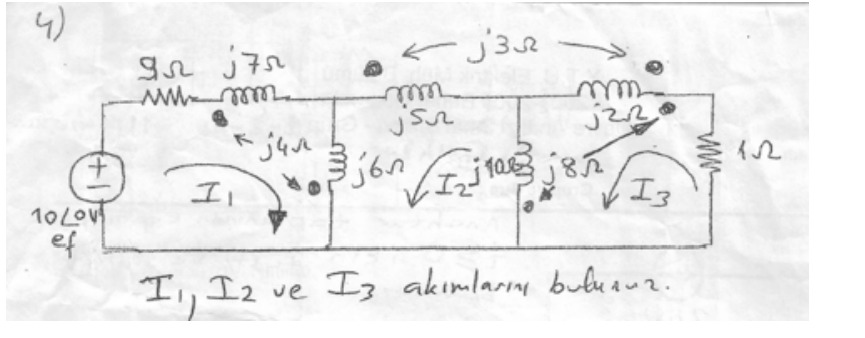 4)
j3Ω
9Ω j7Ω
j5Ω j2Ω
j4Ω j6Ω j10Ω j8Ω 1Ω
+
-
I1 I2 I3
10∠0V
ef
I1, I2 ve I3 akımlarını bulunuz.